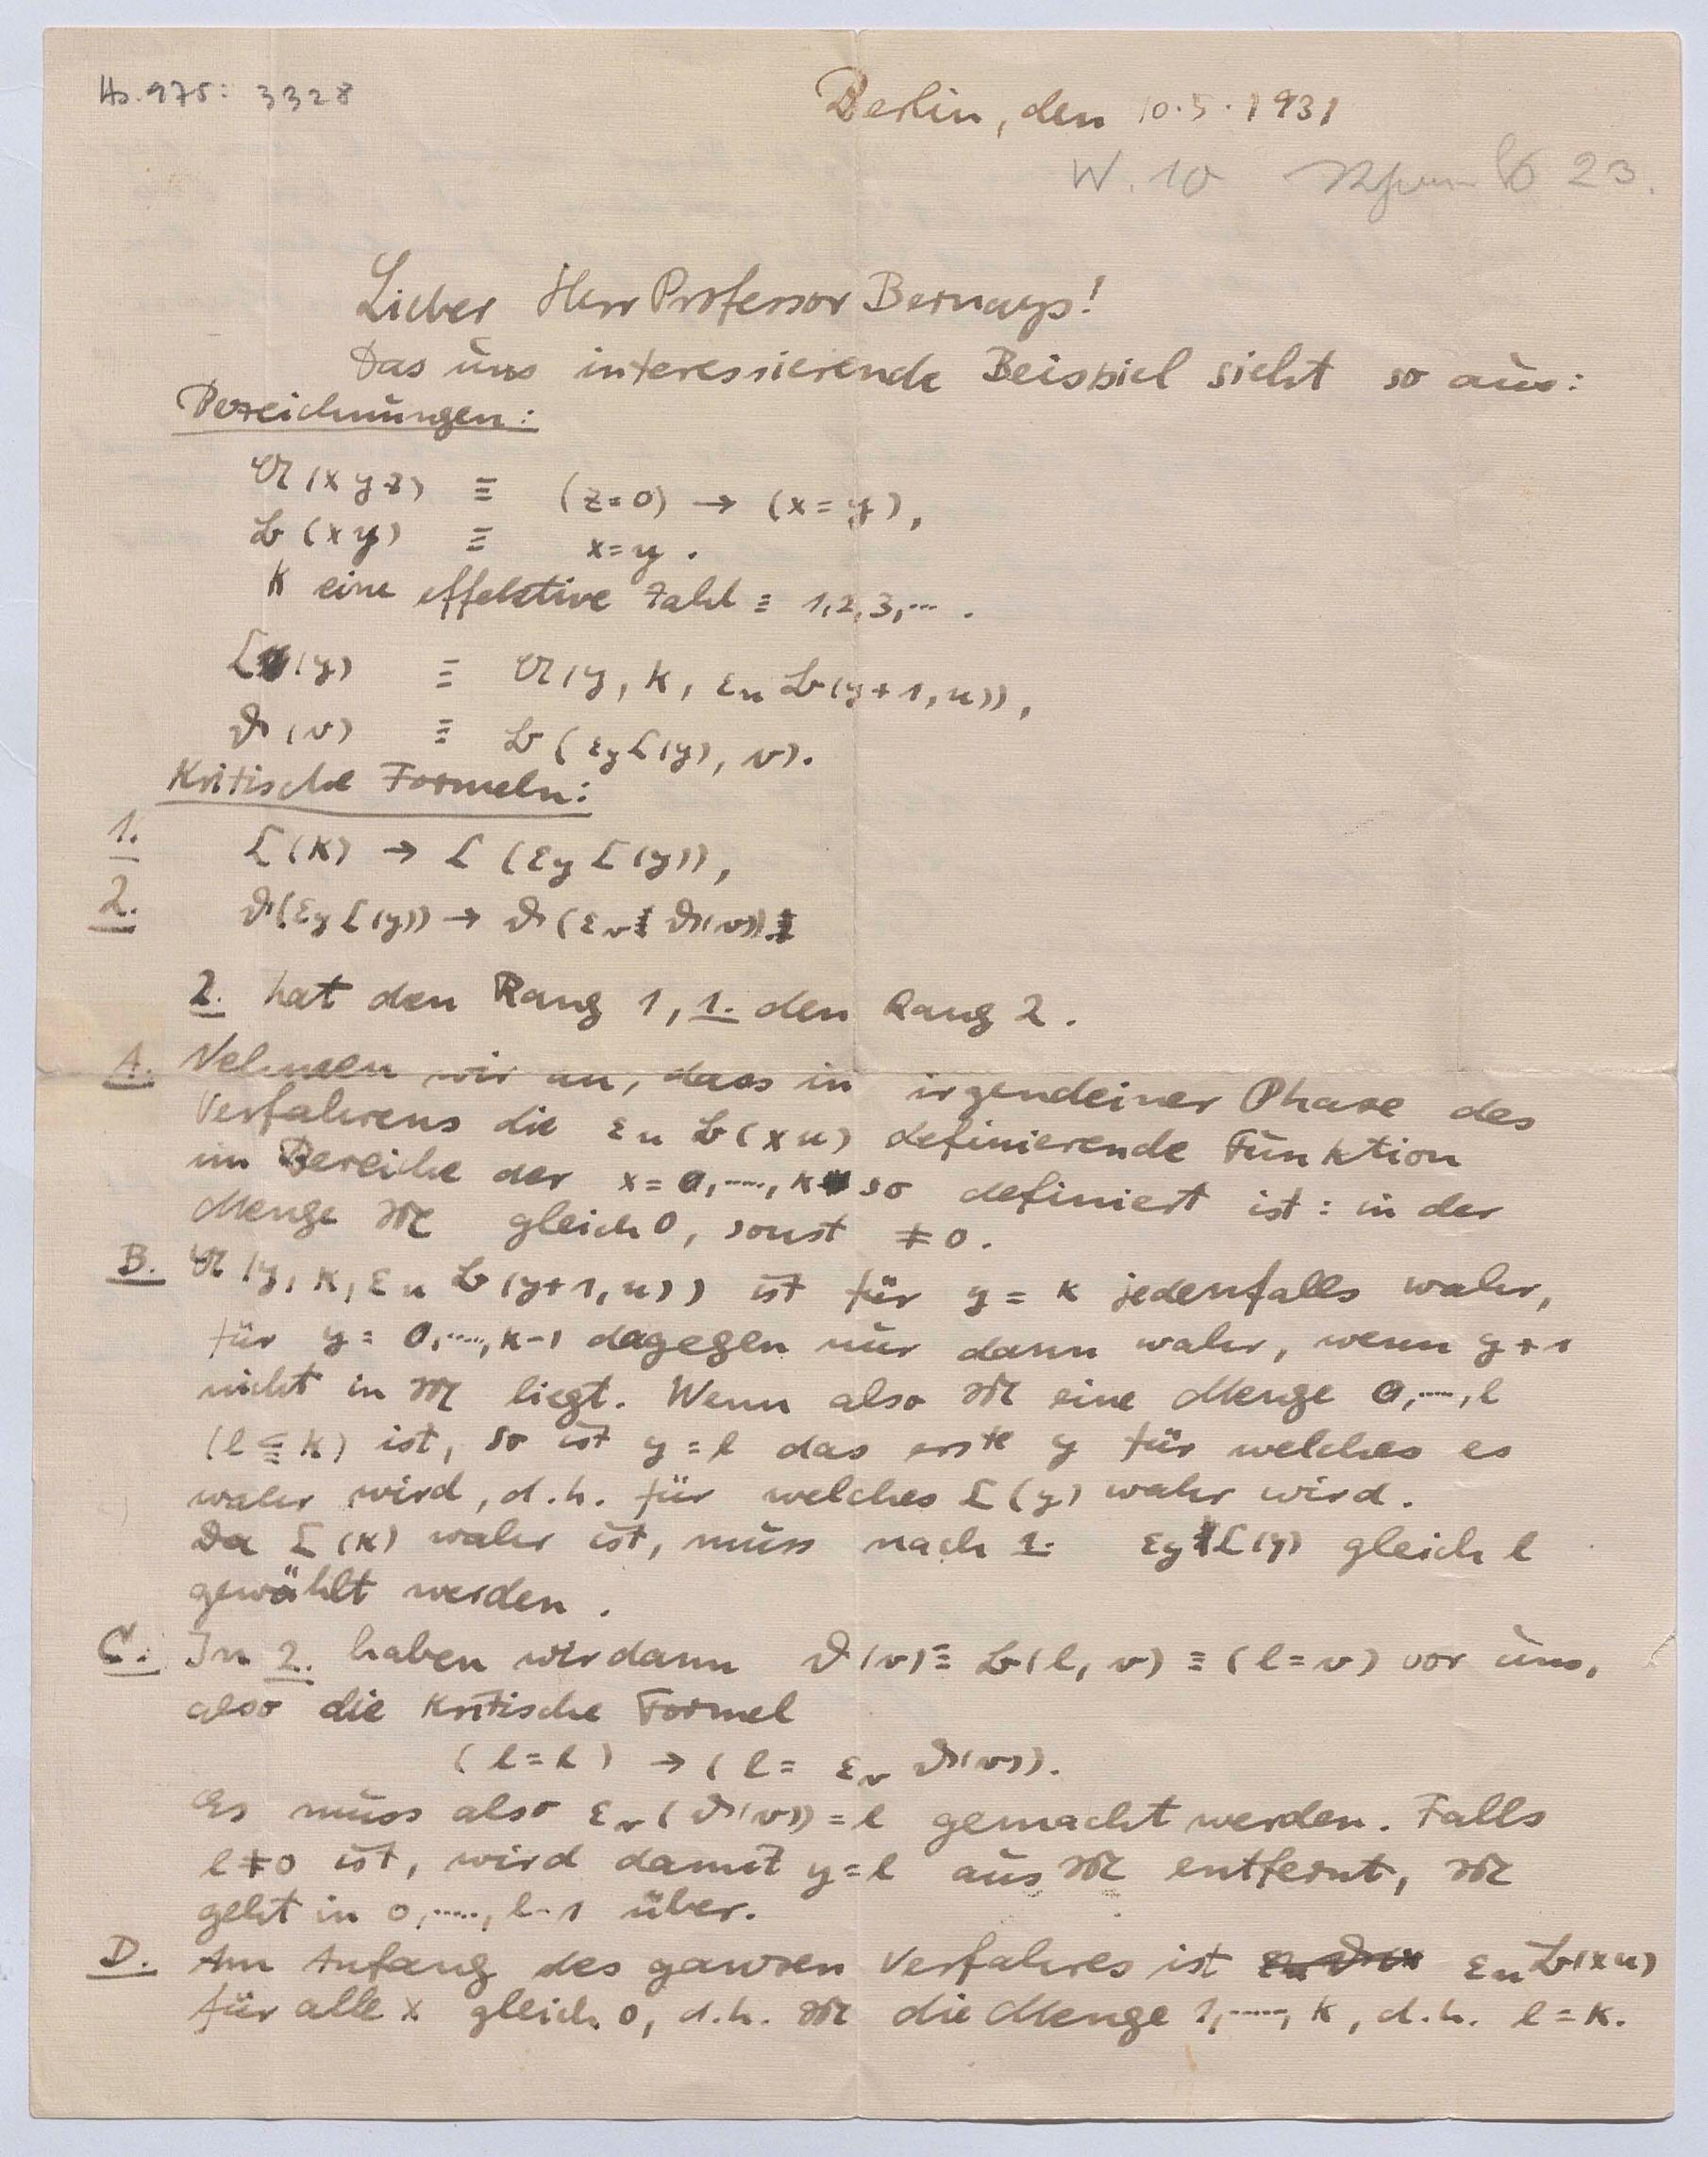 Hs. 975: 3328
Berlin, den 10.5.1931
W. 10 23.
Lieber Herr Professor Bernays!
Das uns interessierende Beispiel sieht so aus:
Bezeichnungen:
𝔄(x y z) ≡ (z=0) → (x=y),
𝔅(x y) ≡ x=y.
k eine effektive Zahl ≡ 1,2,3,… .
ℭ(y) ≡ 𝔄(y, k, ε_u 𝔅(y+1, u)),
𝔇(v) ≡ 𝔅(ε_y ℭ(y), v).
Kritische Formeln:
1. ℭ(k) → ℭ(ε_y ℭ(y)),
2. 𝔇(ε_y ℭ(y)) → 𝔇(ε_v 𝔇(v))
2. hat den Rang 1, 1. den Rang 2.
A. Nehmen wir an, dass in irgendeiner Phase des
Verfahrens die ε_u 𝔅(x u) definierende Funktion
im Bereiche der x = 0,…, k so definiert ist: in der
Menge 𝔐 gleich 0, sonst ≠ 0.
B. 𝔄(y, k, ε_u 𝔅(y+1, u)) ist für y = k jedenfalls wahr,
für y = 0,…, k-1 dagegen nur dann wahr, wenn y+1
nicht in 𝔐 liegt. Wenn also 𝔐 eine Menge 0,…, l
(l ≦ k) ist, so ist y = l das erste y für welches es
wahr wird, d.h. für welches ℭ(y) wahr wird.
Da ℭ(k) wahr ist, muss nach 1. ε_y ℭ(y) gleich l
gewählt werden.
C. In 2. haben wir dann 𝔇(v) ≡ 𝔅(l, v) ≡ (l=v) vor uns,
also die kritische Formel
(l=l) → (l= ε_v 𝔇(v)).
Es muss also ε_v(𝔇(v)) = l gemacht werden. Falls
l ≠ 0 ist, wird damit y = l aus 𝔐 entfernt, 𝔐
geht in 0,…, l-1 über.
D. Am Anfang des ganzen Verfahres ist ε_u 𝔅(x u)
für alle x gleich 0, d.h. 𝔐 die Menge 1,…, k, d.h. l = k.